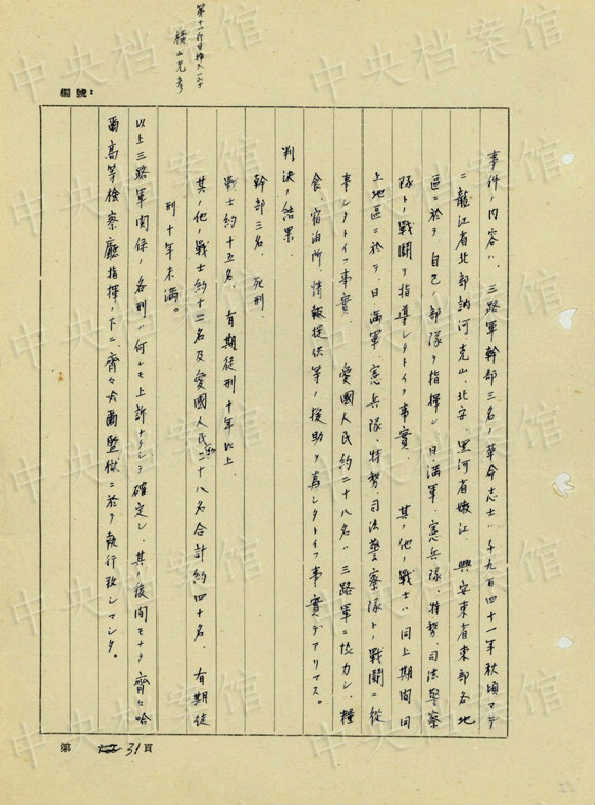 第十一行目挿入一字
横山光彦
編號：
事件ノ内容ハ、三路軍幹部三名ノ革命志士ハ千九百四十一年秋頃マデ
ニ龍江省北部訥河克山、北安、黒河省嫩江、興安東省東部各地
區ニ於テ、自己ノ部隊ヲ指揮シ日満軍、憲兵隊、特務、司法警察
隊トノ戰鬪ヲ指導シタトイフ事實、其ノ他ノ戰士ハ同上期間同
上地區ニ於テ、日満軍、憲兵隊、特務、司法警察隊トノ戰鬪ニ從
事シタトイフ事實、愛國人民約二十八名ハ三路軍ニ協力シ、糧
食、宿泊所、情報提供等ノ援助ヲ為シタトイフ事實デアリマス。
判決ノ結果、
幹部三名、死刑、
戰士約十五名、有期徒刑十年以上
其ノ他ノ戰士約十二名及愛國人民約二十八名合計約四十名、有期徒
刑十年未満。
以上三路軍関係ノ各刑ハ何レモ上訴ナクシテ確定シ、其ノ後間モナク齊々哈
爾高等検察廳指揮ノ下ニ、齊々哈爾監獄ニ於テ執行致シマシタ。
第 31 頁
中央档案馆